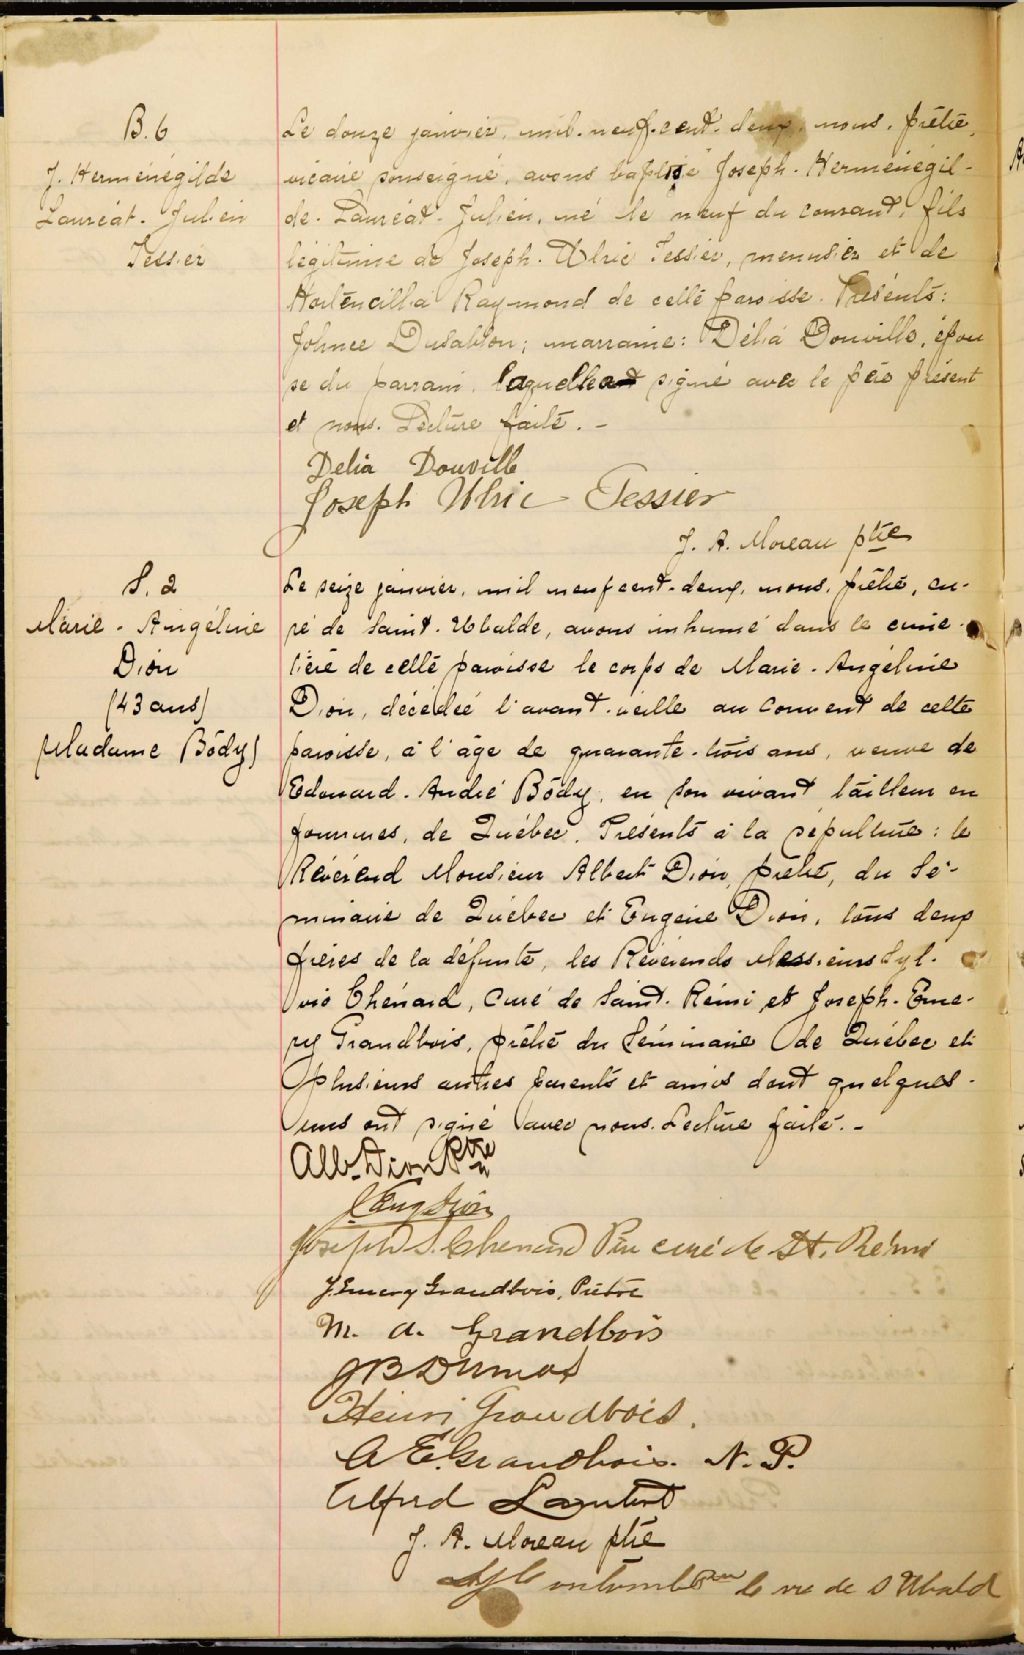 B. 6
J. Herménégilde
Lauréat. Julien
Tessier
Le douze janvier, mil-neuf-cent-deux, nous, prêtre,
vicaire soussigné, avons baptisé Joseph-Herménégil-
de-Lauréat-Julien, né le neuf du courant, fils
légitime de Joseph-Ulric Tessier, menusier et de
Hortencillia Raymond de cette paroisse. Présents:
Johnee Dusablon; marraine: Délia Douville, épou
se du parrain, laquelle a signé avec le père présent
et nous. Lecture faite. -
Delia Douville
Joseph Ulric Tessier
J. A. Moreau ptre
S. 2
Marie-Angéline
Dion
(43 ans)
(Madame Bódy)
Le seize janvier, mil neuf cent-deux, nous, prêtre, cu-
ré de Saint-Ubalde, avons inhumé dans le cime-
tière de cette paroisse le corps de Marie-Angéline
Dion, décédée l'avant-veille au Couvent de cette
paroisse, à l'âge de quarante-trois ans, veuve de
Edouard-André Bódy, en son vivant tailleur en
fourrures, de Québec. Présents à la sépulture: le
Révérend Monsieur Albert Dion, prêtre, du Sé-
minaire de Québec et Eugène Dion, tous deux
frères de la défunte, les Révérends Messieurs Syl-
vio Chénard, Curé de Saint-Rémi et Joseph-Eme-
ry Grandbois, prêtre du Séminaire de Québec et
plusieurs autres parents et amis dont quelques-
uns ont signé avec nous. Lecture faite. -
Alb. Dion Ptre
J Eug Dion
Joseph S. Chenard Ptre curé de St. Rémi
J Emery Grandbois, Prêtre
M. A. Grandbois
JB Dumas
Henri Grandbois.
A E. Grandbois. N. P.
Alfred Lambert
J. A. Moreau ptre
de S Ubald